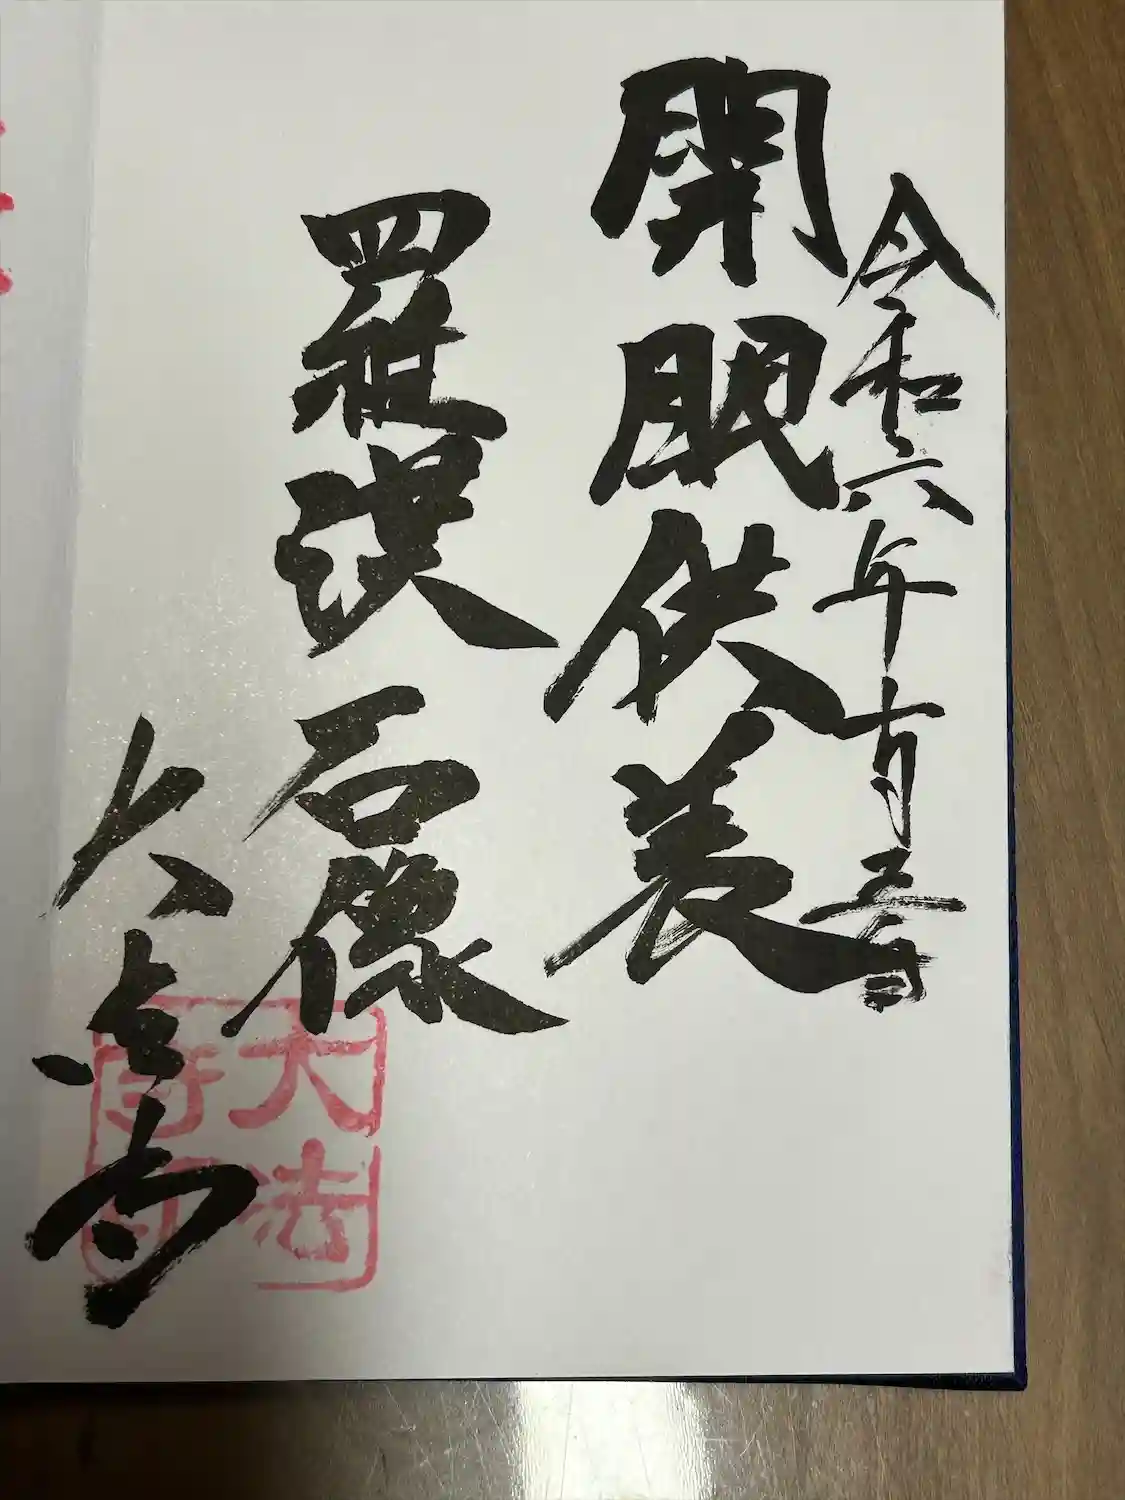 令和六年十月
開眼供養
羅漢石像
大法寺
大法寺印